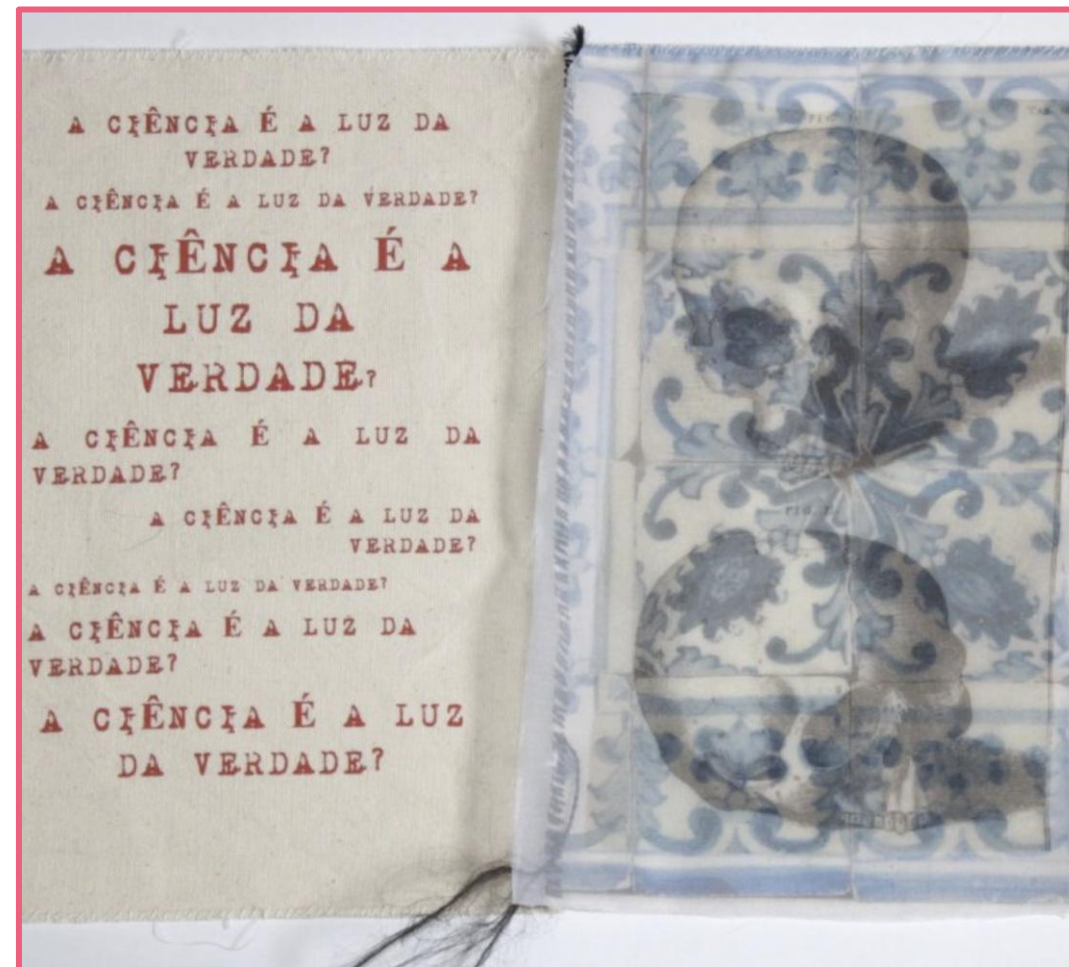 A CIÊNCIA É A LUZ DA
VERDADE?
A CIÊNCIA É A LUZ DA VERDADE?
A CIÊNCIA É A
LUZ DA
VERDADE?
A CIÊNCIA É A LUZ DA
VERDADE?
A CIÊNCIA É A LUZ DA
VERDADE?
A CIÊNCIA É A LUZ DA VERDADE?
A CIÊNCIA É A LUZ DA
VERDADE?
A CIÊNCIA É A LUZ
DA VERDADE?